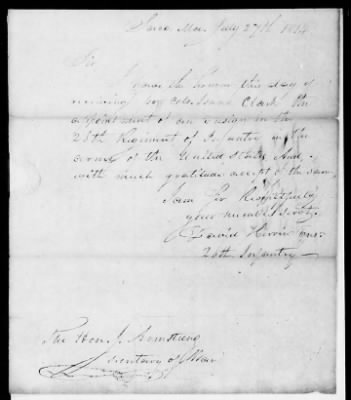 July 27th 1814
Sir
I have the honor this day of
receiving by Col. Isaac Clark the
appointment of an ensign in the
26th Regiment of Infantry in the
army of the United States, And
with much gratitude accept of the same
I am Sir Respectfully
your humble Servt.
David
26th Infantry
The Hon. J. Armstrong
Secretary of War